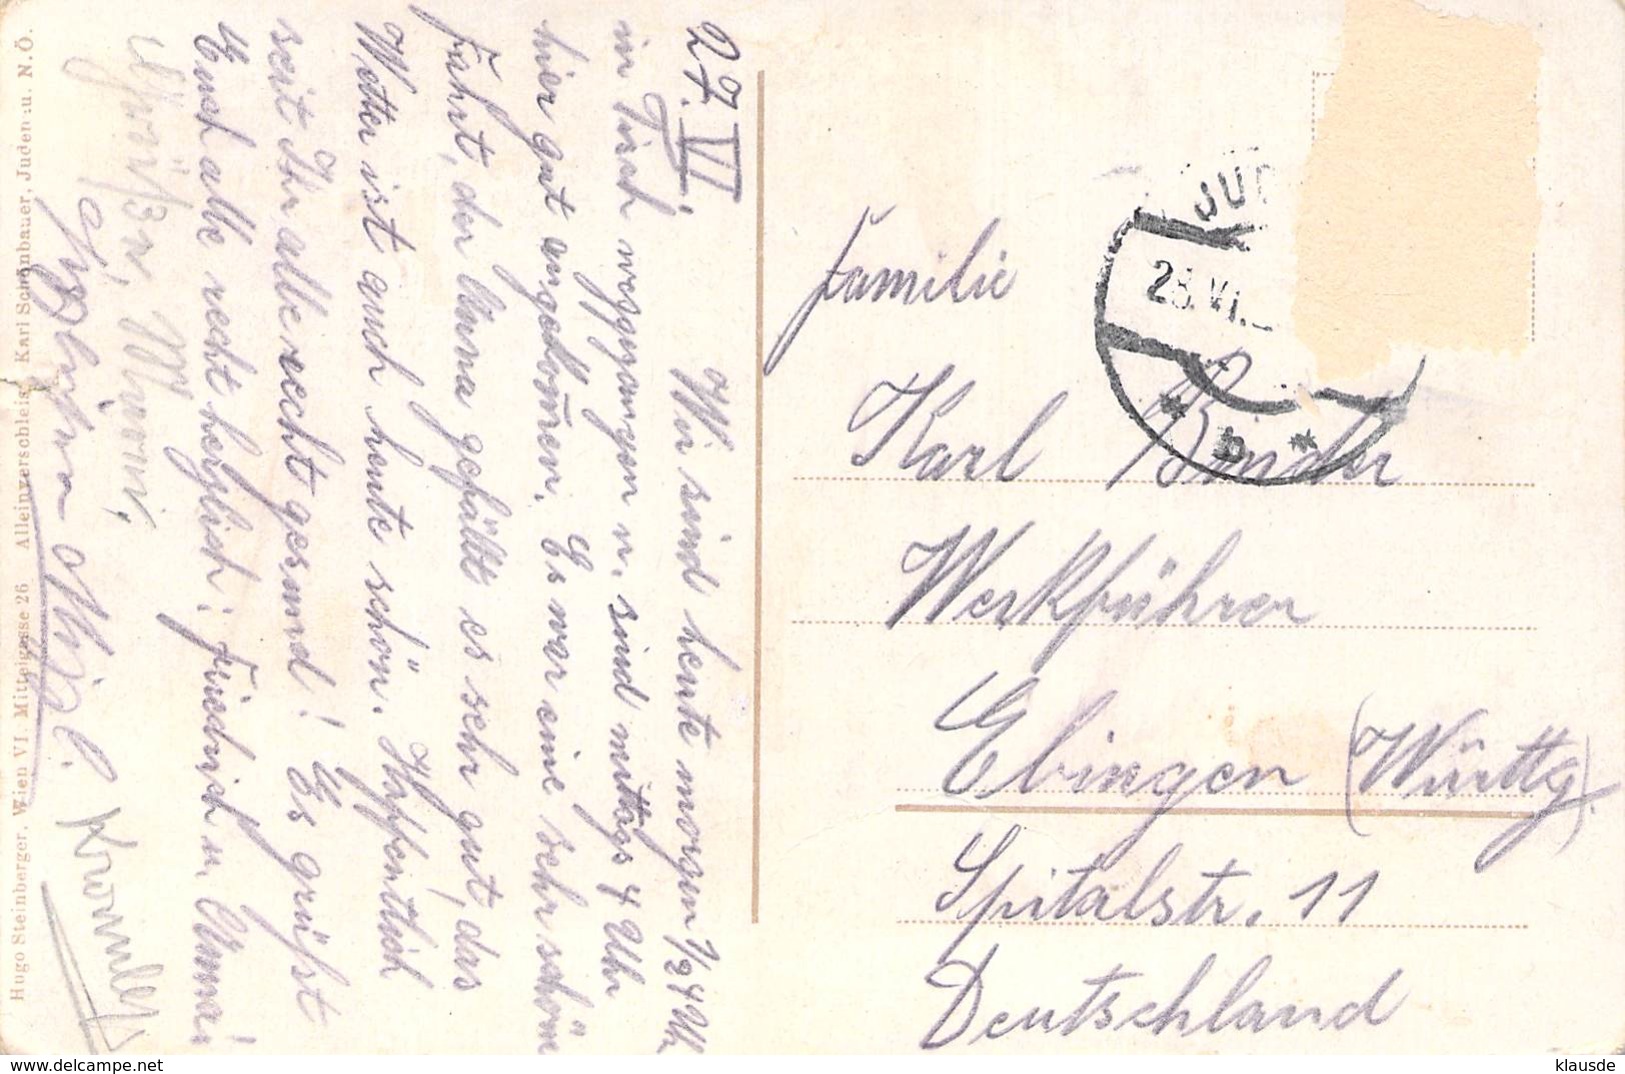 27.VI.
Wir sind heute morgen 1/2 4 Uhr
in weggegangen u. sind mittags 4 Uhr
hier gut angekom̄en. Es war eine sehr schöne
Fahrt, der Anna gefällt es sehr gut, das
Wetter ist auch heute schön. Hoffentlich
seit Ihr alle recht gesund! Es grüßt
Euch alle recht herzlich: Friedrich u. Anna.
Familie
Karl Binder
Werkführer
Ebingen (Württbg).
Spitalstr. 11
Deutschland
JUD
28.VI.
* b *
Hugo Steinberger, Wien VI. Mittelgasse 26 Alleinverschleiss, Karl Schönbauer, Judenau. N.Ö.
klausde